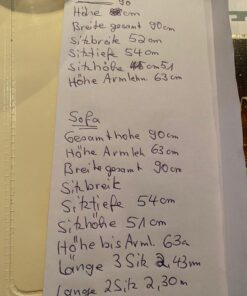 90
Höhe cm
Breite gesamt 90cm
Sitzbreite 52cm
Sitztiefe 54cm
Sitzhöhe 51
Höhe Armlehn 63cm
Sofa
Gesamthöhe 90cm
Höhe Armleh 63cm
Breite gesamt 90cm
Sitzbreit
Sitztiefe 54cm
Sitzhöhe 51cm
Höhe bis Arml. 63cm
Länge 3 Sitz 2,43m
Länge 2 Sitz 2,30m